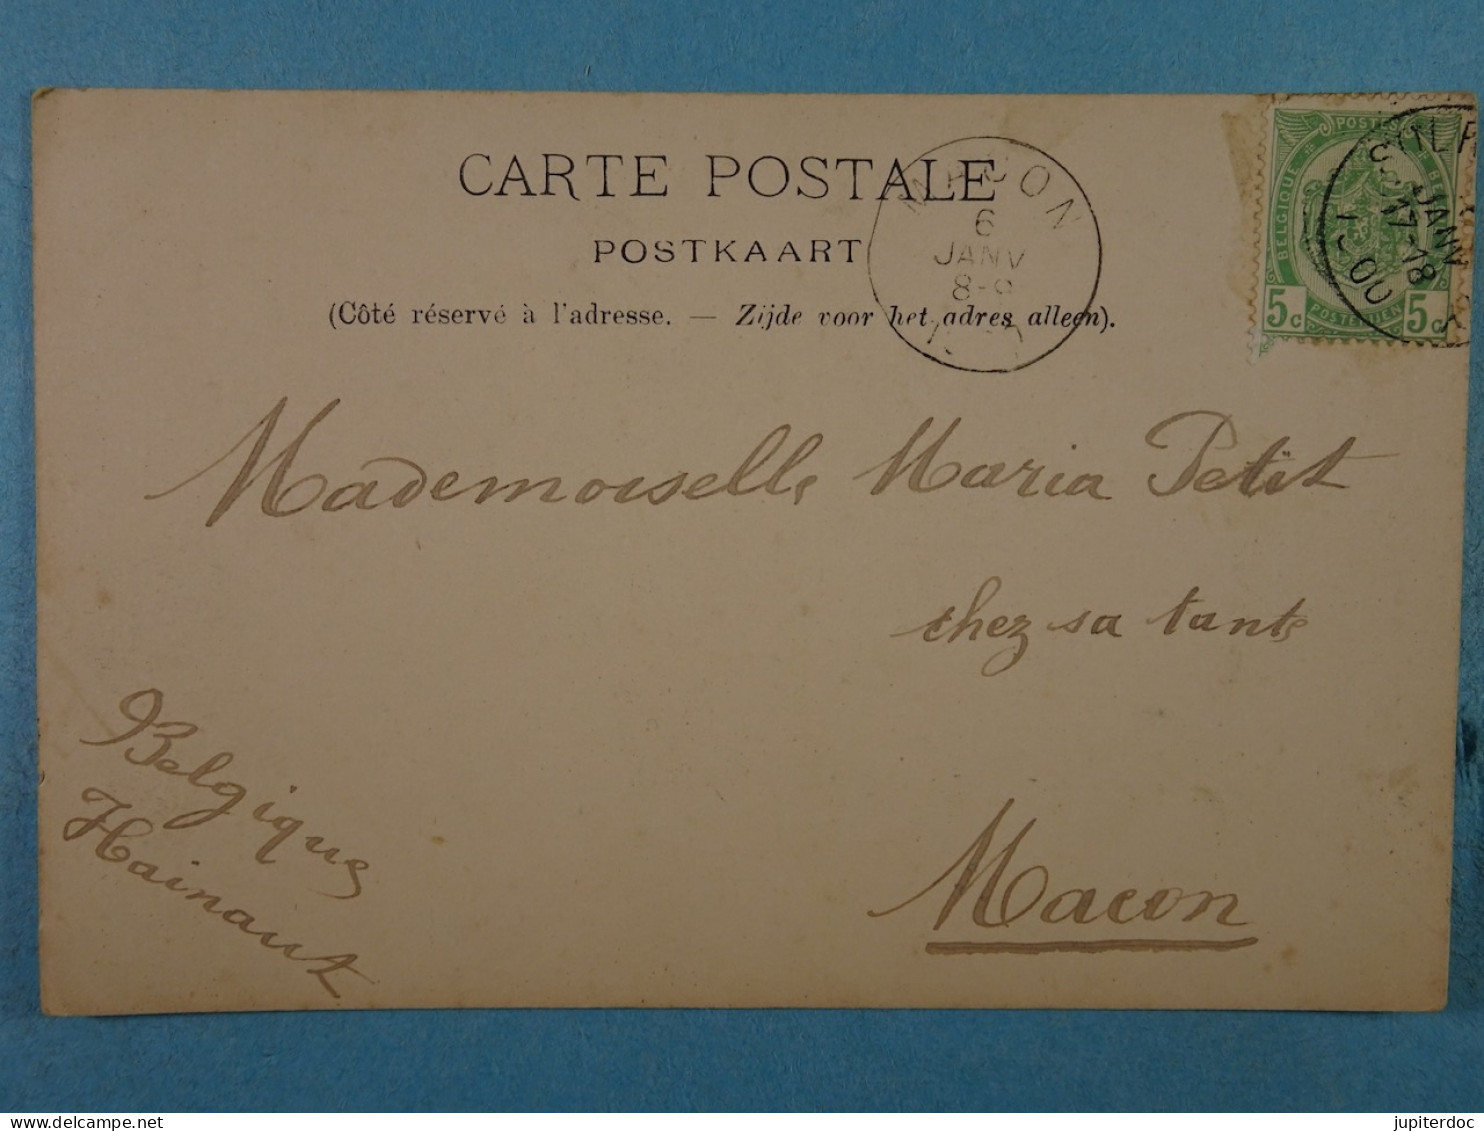 CARTE POSTALE
POSTKAART
(Côté réservé à l'adresse. — Zijde voor het adres alleen).
MACON
6
JANV
8-9
POSTES
BELGIQUE
BELGIË
5c
POSTERIJEN
5c
JANV
17-18
Mademoiselle Maria Petit
chez sa tante
Macon
Belgique
Hainaut
jupiterdoc